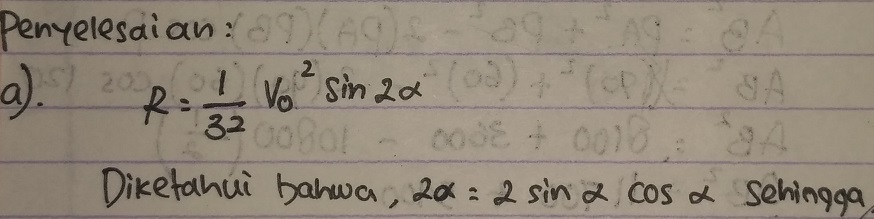 Penyelesaian:
a). R = 1/32 V₀² sin 2α
Diketahui bahwa, 2α = 2 sin α cos α sehingga